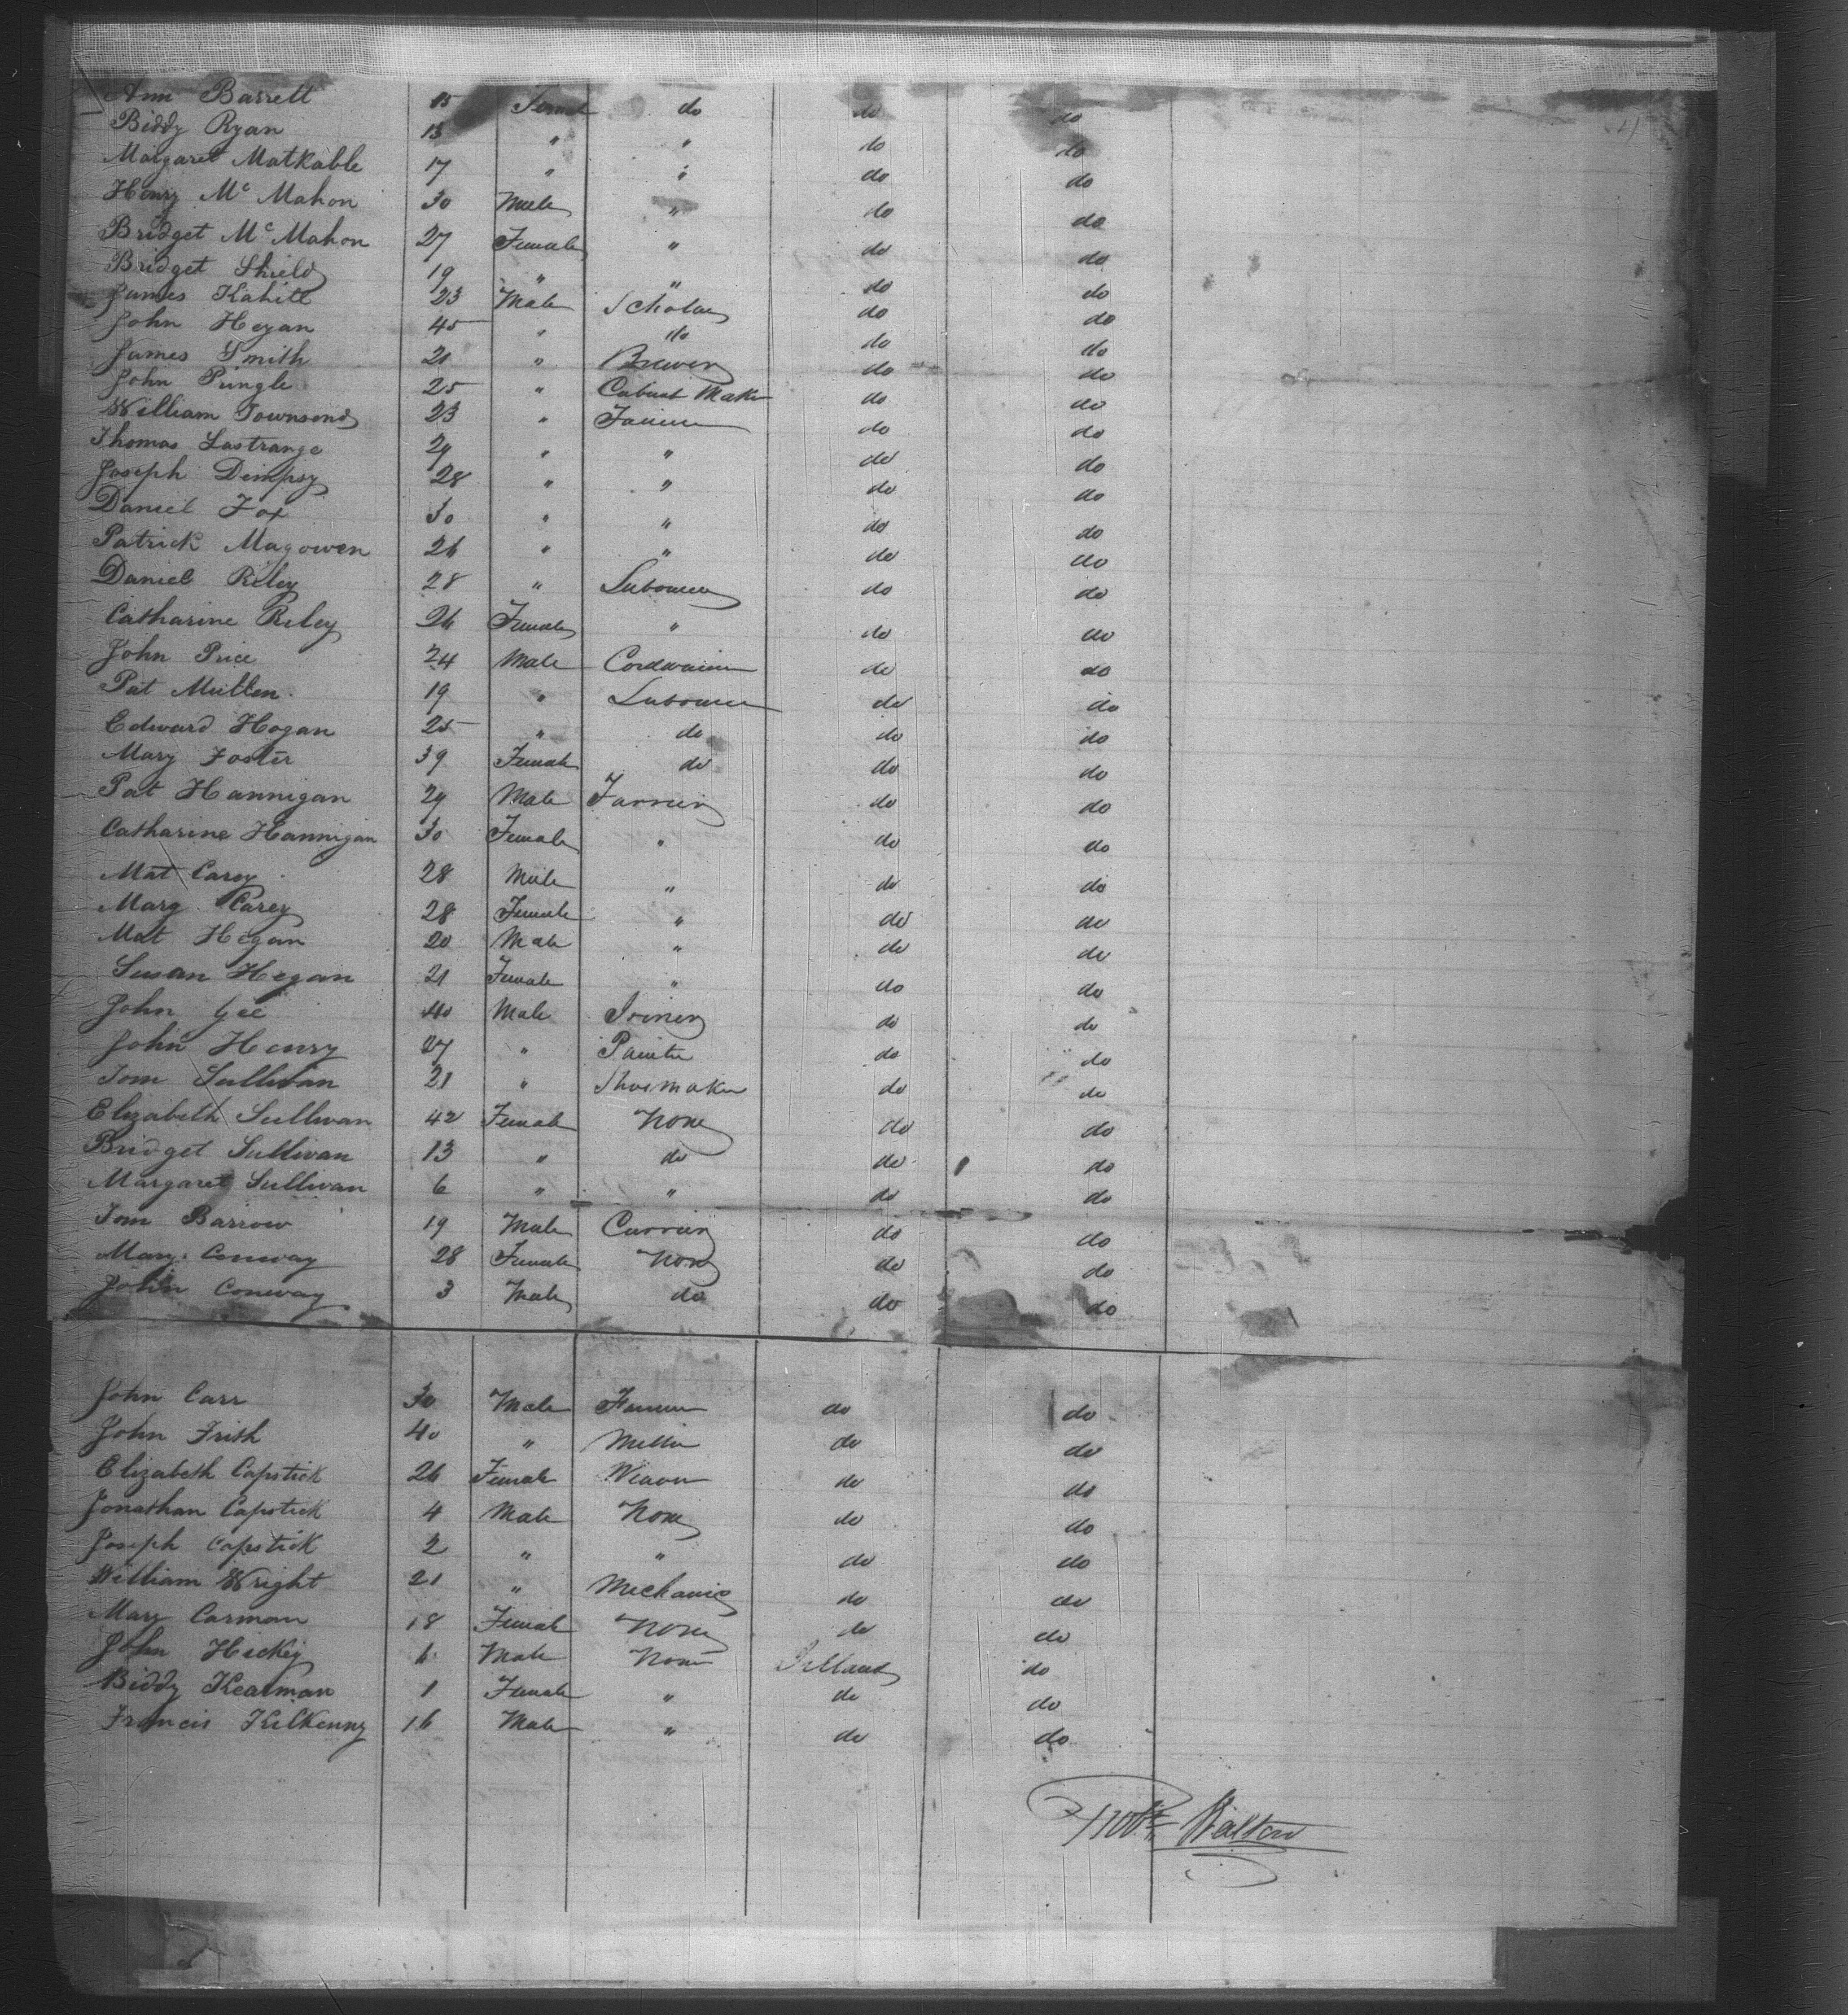 Ann Barrett 15 Female do do do
Biddy Ryan 13 " " do do
Margaret Matkable 17 " " do do
Henry Mc Mahon 30 Male " do do
Bridget Mc Mahon 27 Female " do do
Bridget Shields 19 " " do do
James Kahill 23 Male Scholar do do
John Hegan 45 " do do do
James Smith 21 " Brewer do do
John Pringle 25 " Cabinet Maker do do
William Townsend 23 " Farmer do do
Thomas Lastrange 29 " " do do
Joseph Dempsy 28 " " do do
Daniel Fox 30 " " do do
Patrick Magowen 26 " " do do
Daniel Riley 28 " Labourer do do
Catharine Riley 26 Female " do do
John Price 24 Male Cordwainer do do
Pat Mullen 19 " Labourer do do
Edward Hogan 25 " do do do
Mary Foster 39 Female do do do
Pat Hannigan 29 Male Farrier do do
Catharine Hannigan 30 Female " do do
Mat Carey 28 Male " do do
Marg Carey 28 Female " do do
Mat Hegan 20 Male " do do
Susan Hegan 21 Female " do do
John Gee 40 Male do do
John Henry 27 " Painter do do
Tom Sullivan 21 " Shoemaker do do
Elizabeth Sullivan 42 Female None do do
Bridget Sullivan 13 " do do do
Margaret Sullivan 6 " " do do
Tom Barrow 19 Male Currier do do
Mary Conway 28 Female None do do
John Conway 3 Male do do do
John Carr 30 Male Farmer do do
John Frith 40 " Miller do do
Elizabeth Capstick 26 Female Weaver do do
Jonathan Capstick 4 Male None do do
Joseph Capstick 2 " " do do
William Wright 21 " Mechanic do do
Mary Carman 18 Female None do do
John Hickey 6 Male None Ireland do
Biddy Kearman 1 Female " do do
Francis Kilkenny 16 Male " do do
Walton